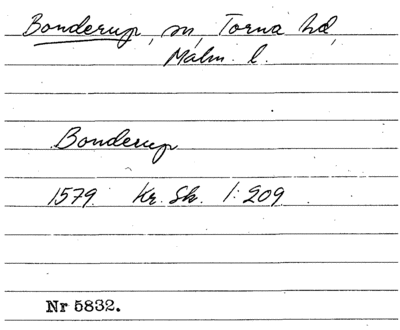 Bonderup, sn, Torna hd,
Malm. l.
Bonderup
1579. Kr. Sk. 1:209
Nr 5832.